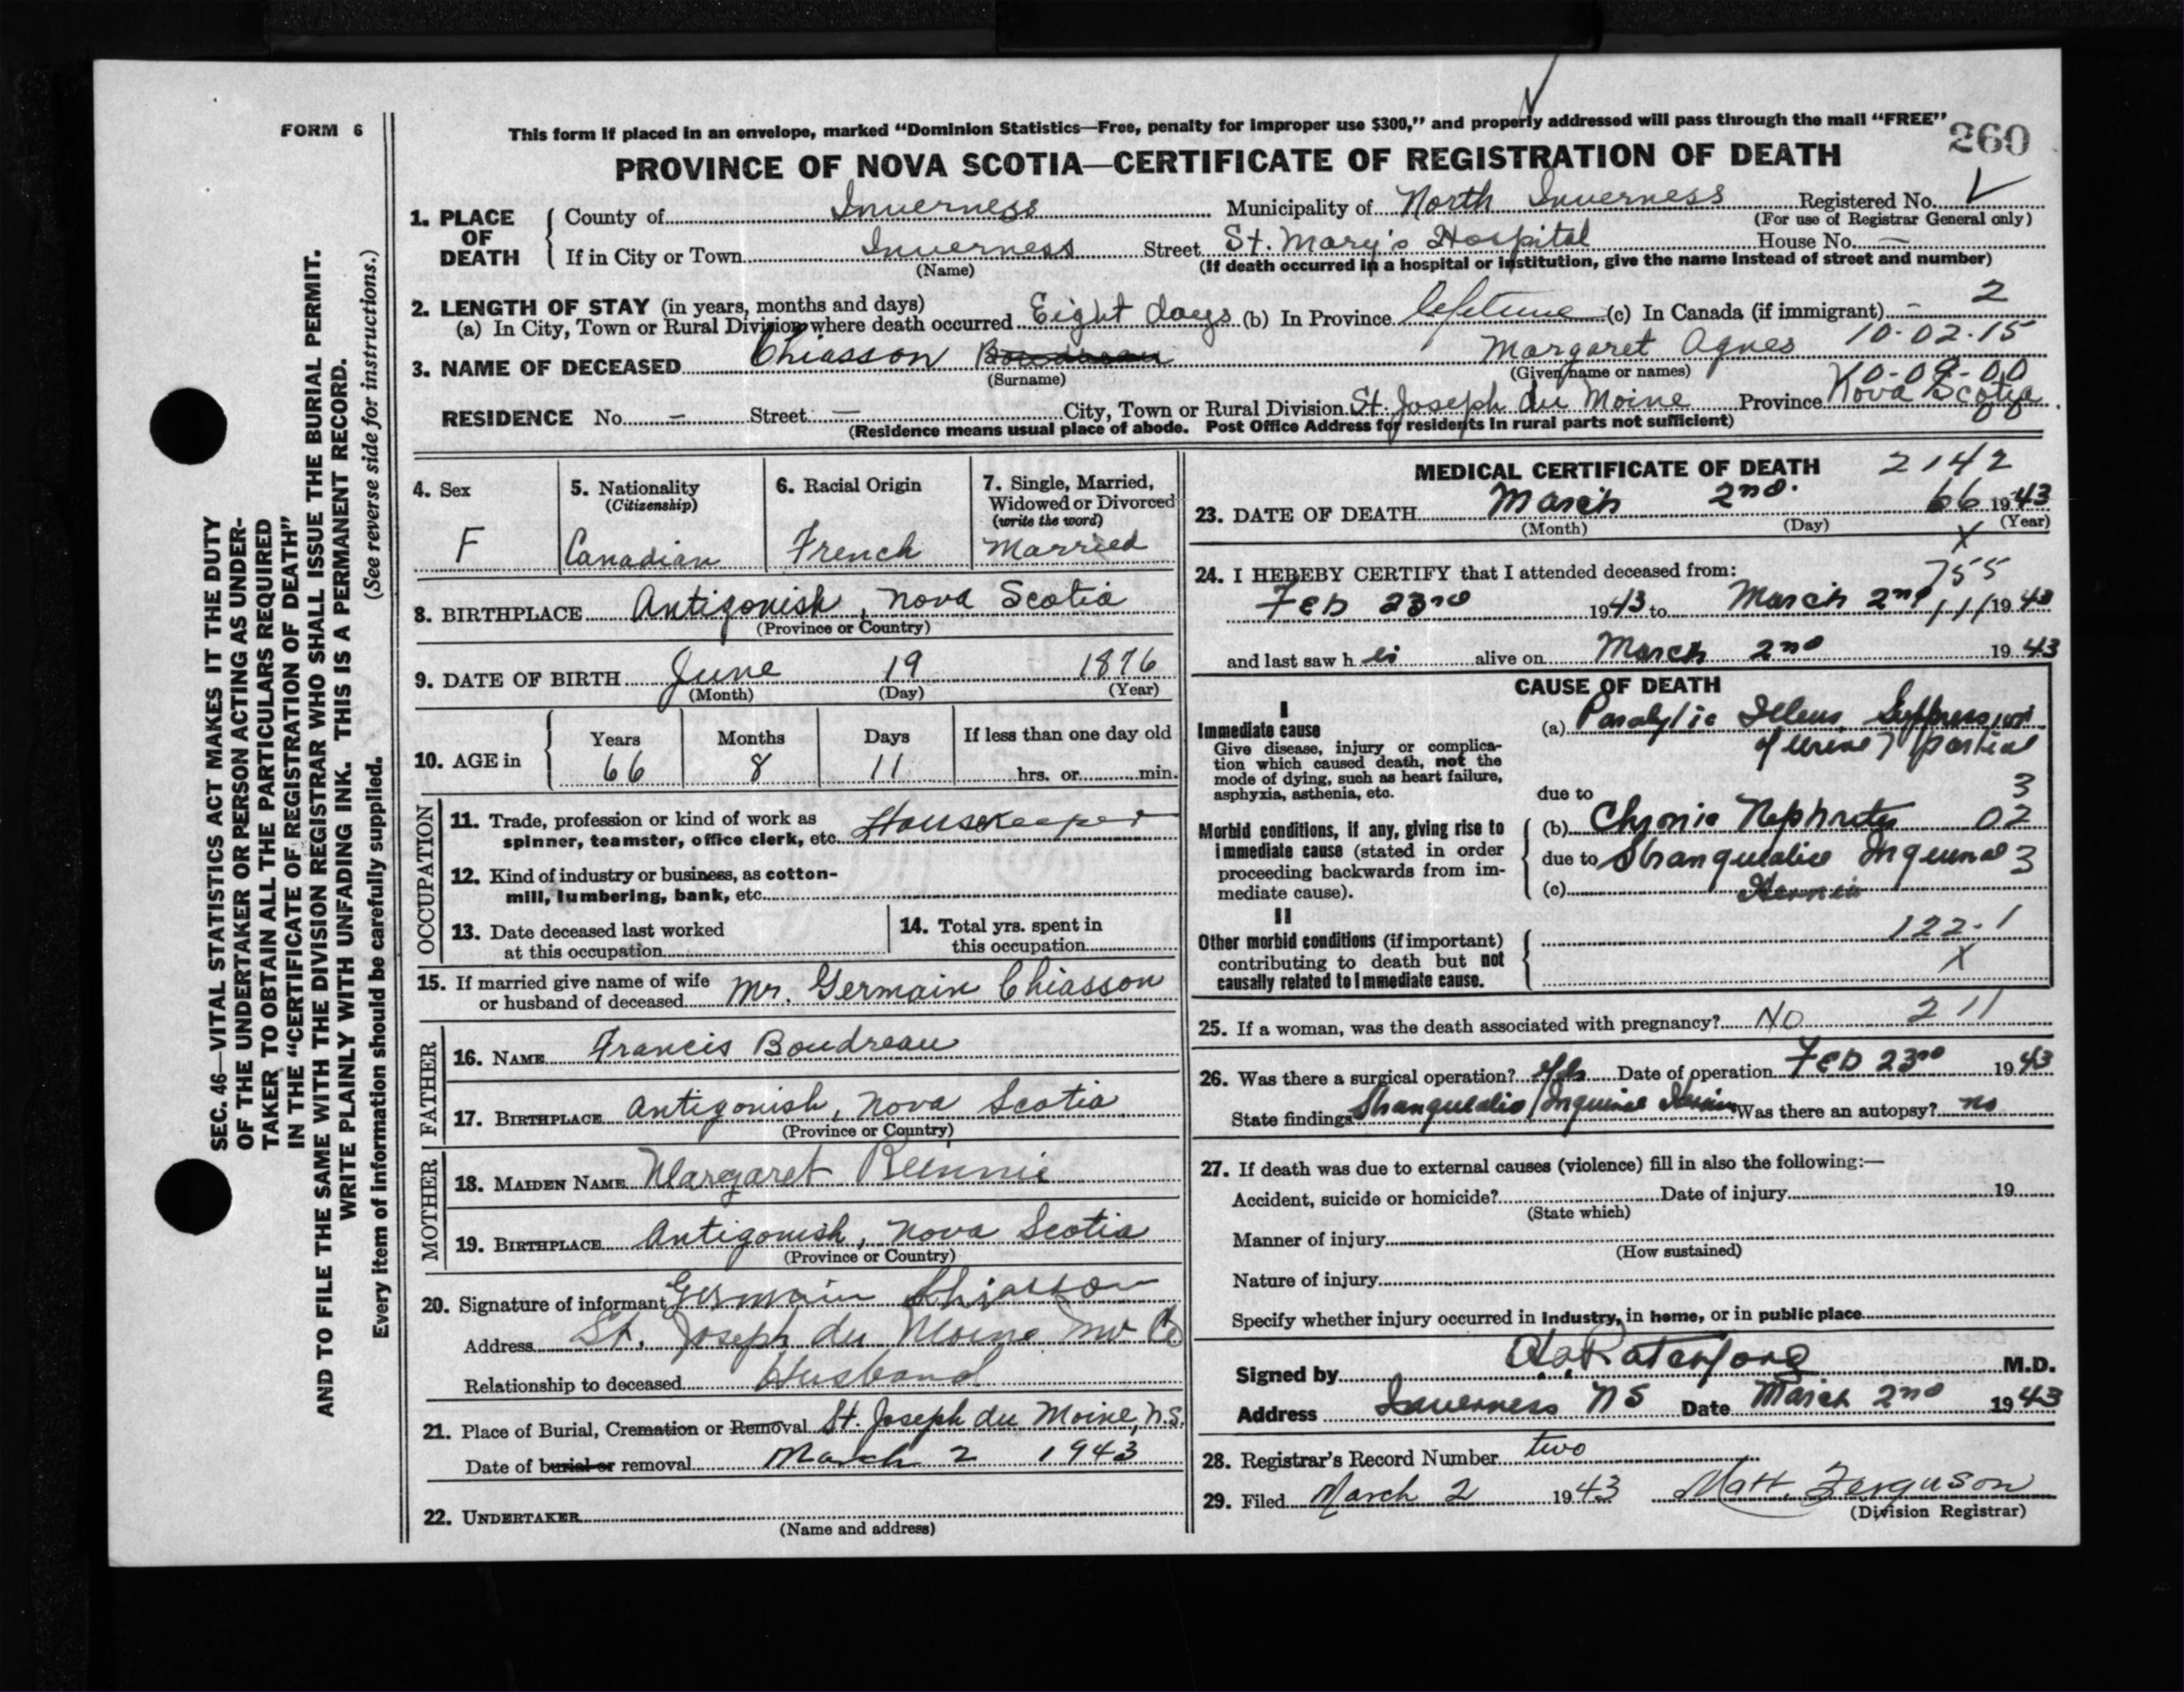 FORM 6
This form if placed in an envelope, marked “Dominion Statistics—Free, penalty for improper use $300,” and properly addressed will pass through the mail “FREE”
260
PROVINCE OF NOVA SCOTIA—CERTIFICATE OF REGISTRATION OF DEATH
1. PLACE OF DEATH
County of Inverness Municipality of North Inverness Registered No.
(For use of Registrar General only)
If in City or Town Inverness Street St. Mary's Hospital House No. —
(Name) (If death occurred in a hospital or institution, give the name instead of street and number)
2. LENGTH OF STAY (in years, months and days)
(a) In City, Town or Rural Division where death occurred Eight days (b) In Province lifetime (c) In Canada (if immigrant) – 2
10-02-15
3. NAME OF DECEASED Chiasson Boudreau Margaret Agnes
(Surname) (Given name or names)
10-09-00
RESIDENCE No. — Street — City, Town or Rural Division St. Joseph du Moine Province Nova Scotia
(Residence means usual place of abode. Post Office Address for residents in rural parts not sufficient)
4. Sex
F
5. Nationality
(Citizenship)
Canadian
6. Racial Origin
French
7. Single, Married,
Widowed or Divorced
(write the word)
Married
8. BIRTHPLACE Antigonish, Nova Scotia
(Province or Country)
9. DATE OF BIRTH June 19 1876
(Month) (Day) (Year)
10. AGE in
Years Months Days If less than one day old
66 8 11 hrs. or min.
OCCUPATION
11. Trade, profession or kind of work as
spinner, teamster, office clerk, etc. Housekeeper
12. Kind of industry or business, as cotton-
mill, lumbering, bank, etc.
13. Date deceased last worked
at this occupation
14. Total yrs. spent in
this occupation
15. If married give name of wife
or husband of deceased Mr. Germain Chiasson
FATHER
16. NAME Francis Boudreau
17. BIRTHPLACE Antigonish, Nova Scotia
(Province or Country)
MOTHER
18. MAIDEN NAME Margaret
19. BIRTHPLACE Antigonish, Nova Scotia
(Province or Country)
20. Signature of informant Germain Chiasson
Address St. Joseph du Moine Inv Co
Relationship to deceased Husband
21. Place of Burial, Cremation or Removal St. Joseph du Moine, N.S.
Date of burial or removal March 2 1943
22. UNDERTAKER
(Name and address)
MEDICAL CERTIFICATE OF DEATH 2142
23. DATE OF DEATH March 2nd. 66 1943
(Month) (Day) (Year)
X
24. I HEREBY CERTIFY that I attended deceased from:
755
Feb 23rd 1943 to March 2nd 1943
and last saw h er alive on March 2nd 1943
CAUSE OF DEATH
I
Immediate cause
Give disease, injury or complica-
tion which caused death, not the
mode of dying, such as heart failure,
asphyxia, asthenia, etc.
(a) Paralytic Ileus, Suppression
of urine, partial
due to 3
Morbid conditions, if any, giving rise to
immediate cause (stated in order
proceeding backwards from im-
mediate cause).
(b) Chronic Nephritis 02
due to Strangulated Inguinal 3
(c) Hernia
II
Other morbid conditions (if important)
contributing to death but not
causally related to immediate cause.
122.1
X
25. If a woman, was the death associated with pregnancy? No 211
26. Was there a surgical operation? Yes Date of operation Feb 23rd 1943
State findings Strangulated Inguinal Hernia Was there an autopsy? no
27. If death was due to external causes (violence) fill in also the following:—
Accident, suicide or homicide? Date of injury 19
(State which)
Manner of injury
(How sustained)
Nature of injury
Specify whether injury occurred in industry, in home, or in public place
Signed by M.D.
Address Inverness NS Date March 2nd 1943
28. Registrar's Record Number two
29. Filed March 2 1943 Matt. Ferguson
(Division Registrar)
SEC. 46—VITAL STATISTICS ACT MAKES IT THE DUTY
OF THE UNDERTAKER OR PERSON ACTING AS UNDER-
TAKER TO OBTAIN ALL THE PARTICULARS REQUIRED
IN THE “CERTIFICATE OF REGISTRATION OF DEATH”
AND TO FILE THE SAME WITH THE DIVISION REGISTRAR WHO SHALL ISSUE THE BURIAL PERMIT.
WRITE PLAINLY WITH UNFADING INK. THIS IS A PERMANENT RECORD.
Every item of information should be carefully supplied. (See reverse side for instructions.)